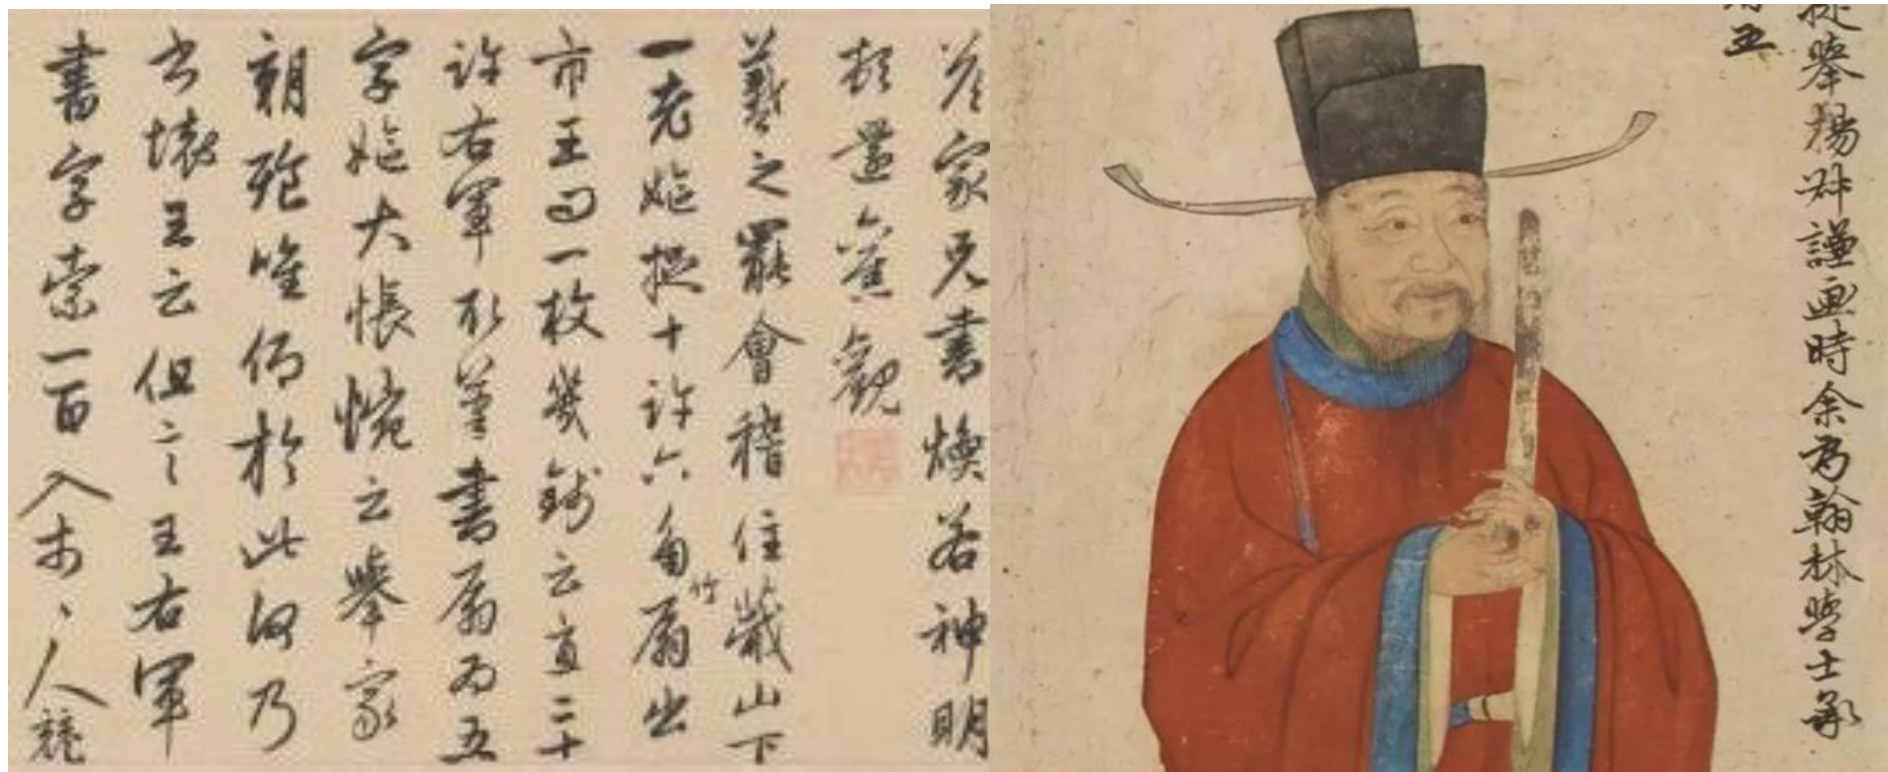 答家兄書煥若神明
頓還舊觀
羲之罷會稽住蕺山下
一老嫗捉十許六角竹扇出
市王問一枚幾錢云直二十
許右軍取筆書扇為五
字嫗大悵惋云舉家
朝飡唯仰於此何乃
書壞王云但言王右軍
書字索一百入市市人競
從舉揚叔謙画時余為翰林學士承
月五